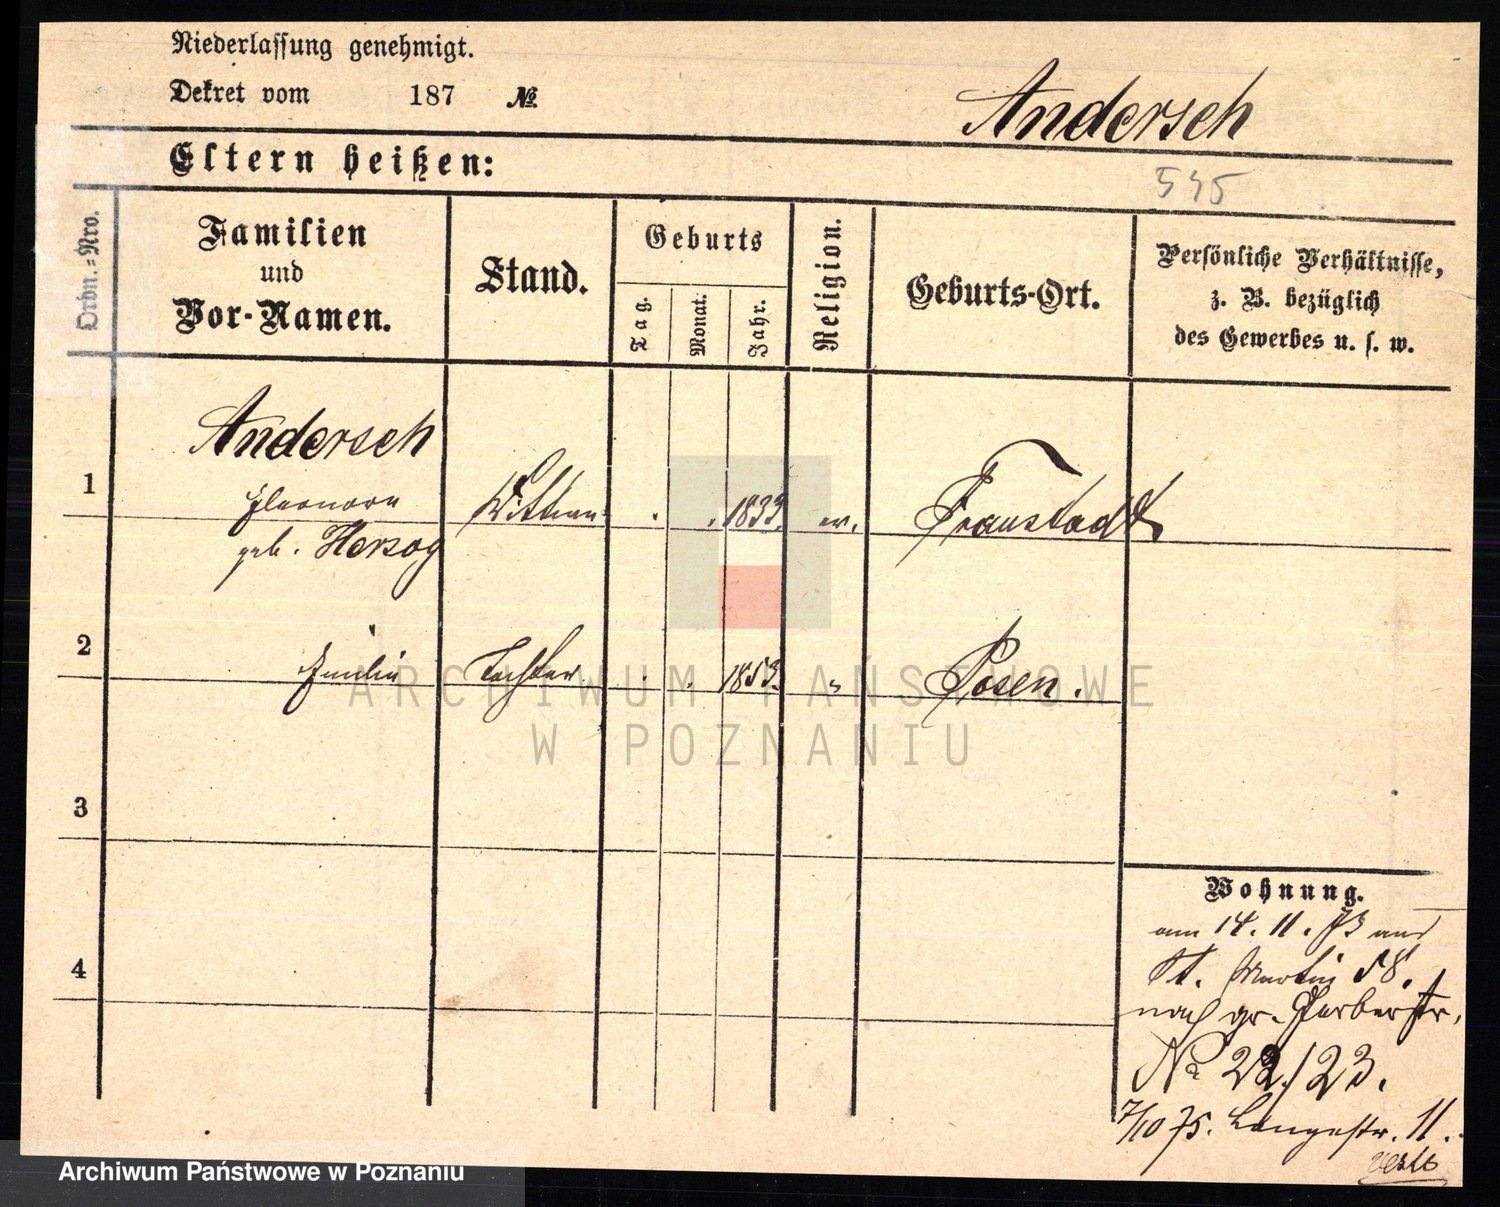 Niederlassung genehmigt.
Dekret vom 187 №
Andersch
Eltern heißen:
545
Ordn.=Nro.
Familien
und
Vor-Namen.
Stand.
Geburts
Tag.
Monat.
Jahr.
Religion.
Geburts-Ort.
Persönliche Verhältnisse,
z. B. bezüglich
des Gewerbes u. s. w.
Andersch
1 Eleonore Wittwe 1833. ev. Fraustadt
geb. Herzog
2 Emilie Tochter 1853. " Posen.
3
4
Wohnung.
am 14. 11. 73 aus
St. Martin 58.
nach gr. Gerberstr.
No 22/23.
7/10 75. Langestr. 11.
ARCHIWUM PAŃSTWOWE
W POZNANIU
Archiwum Państwowe w Poznaniu